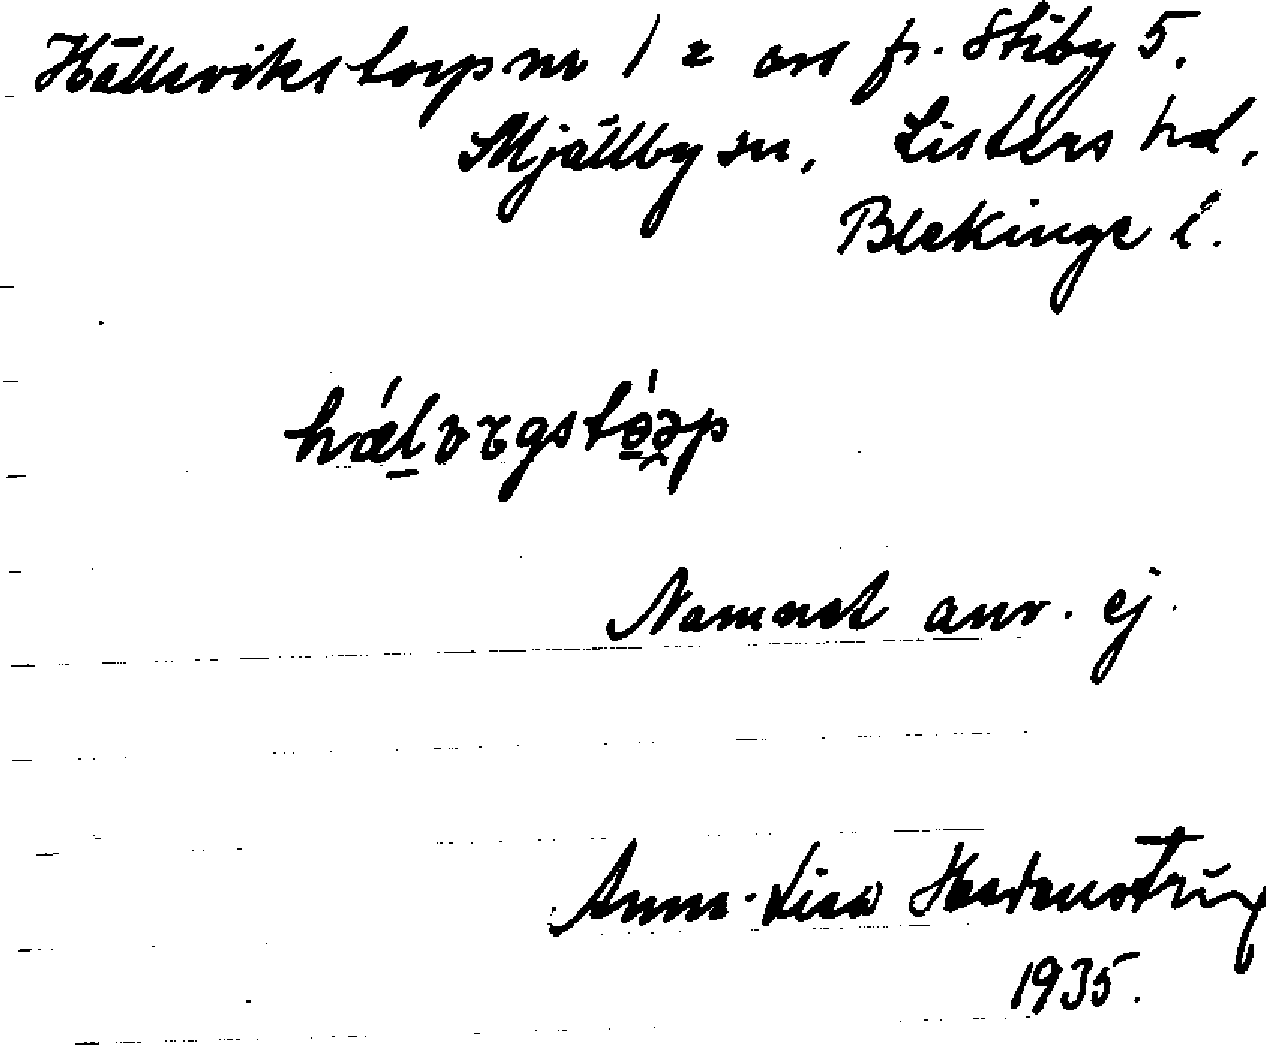 Hällevikstorp nr 1 = avs fr. Stiby 5.
Mjällby sn, Listers hd,
Blekinge l.
Namnet anv. ej.
Anna-Lisa
1935.